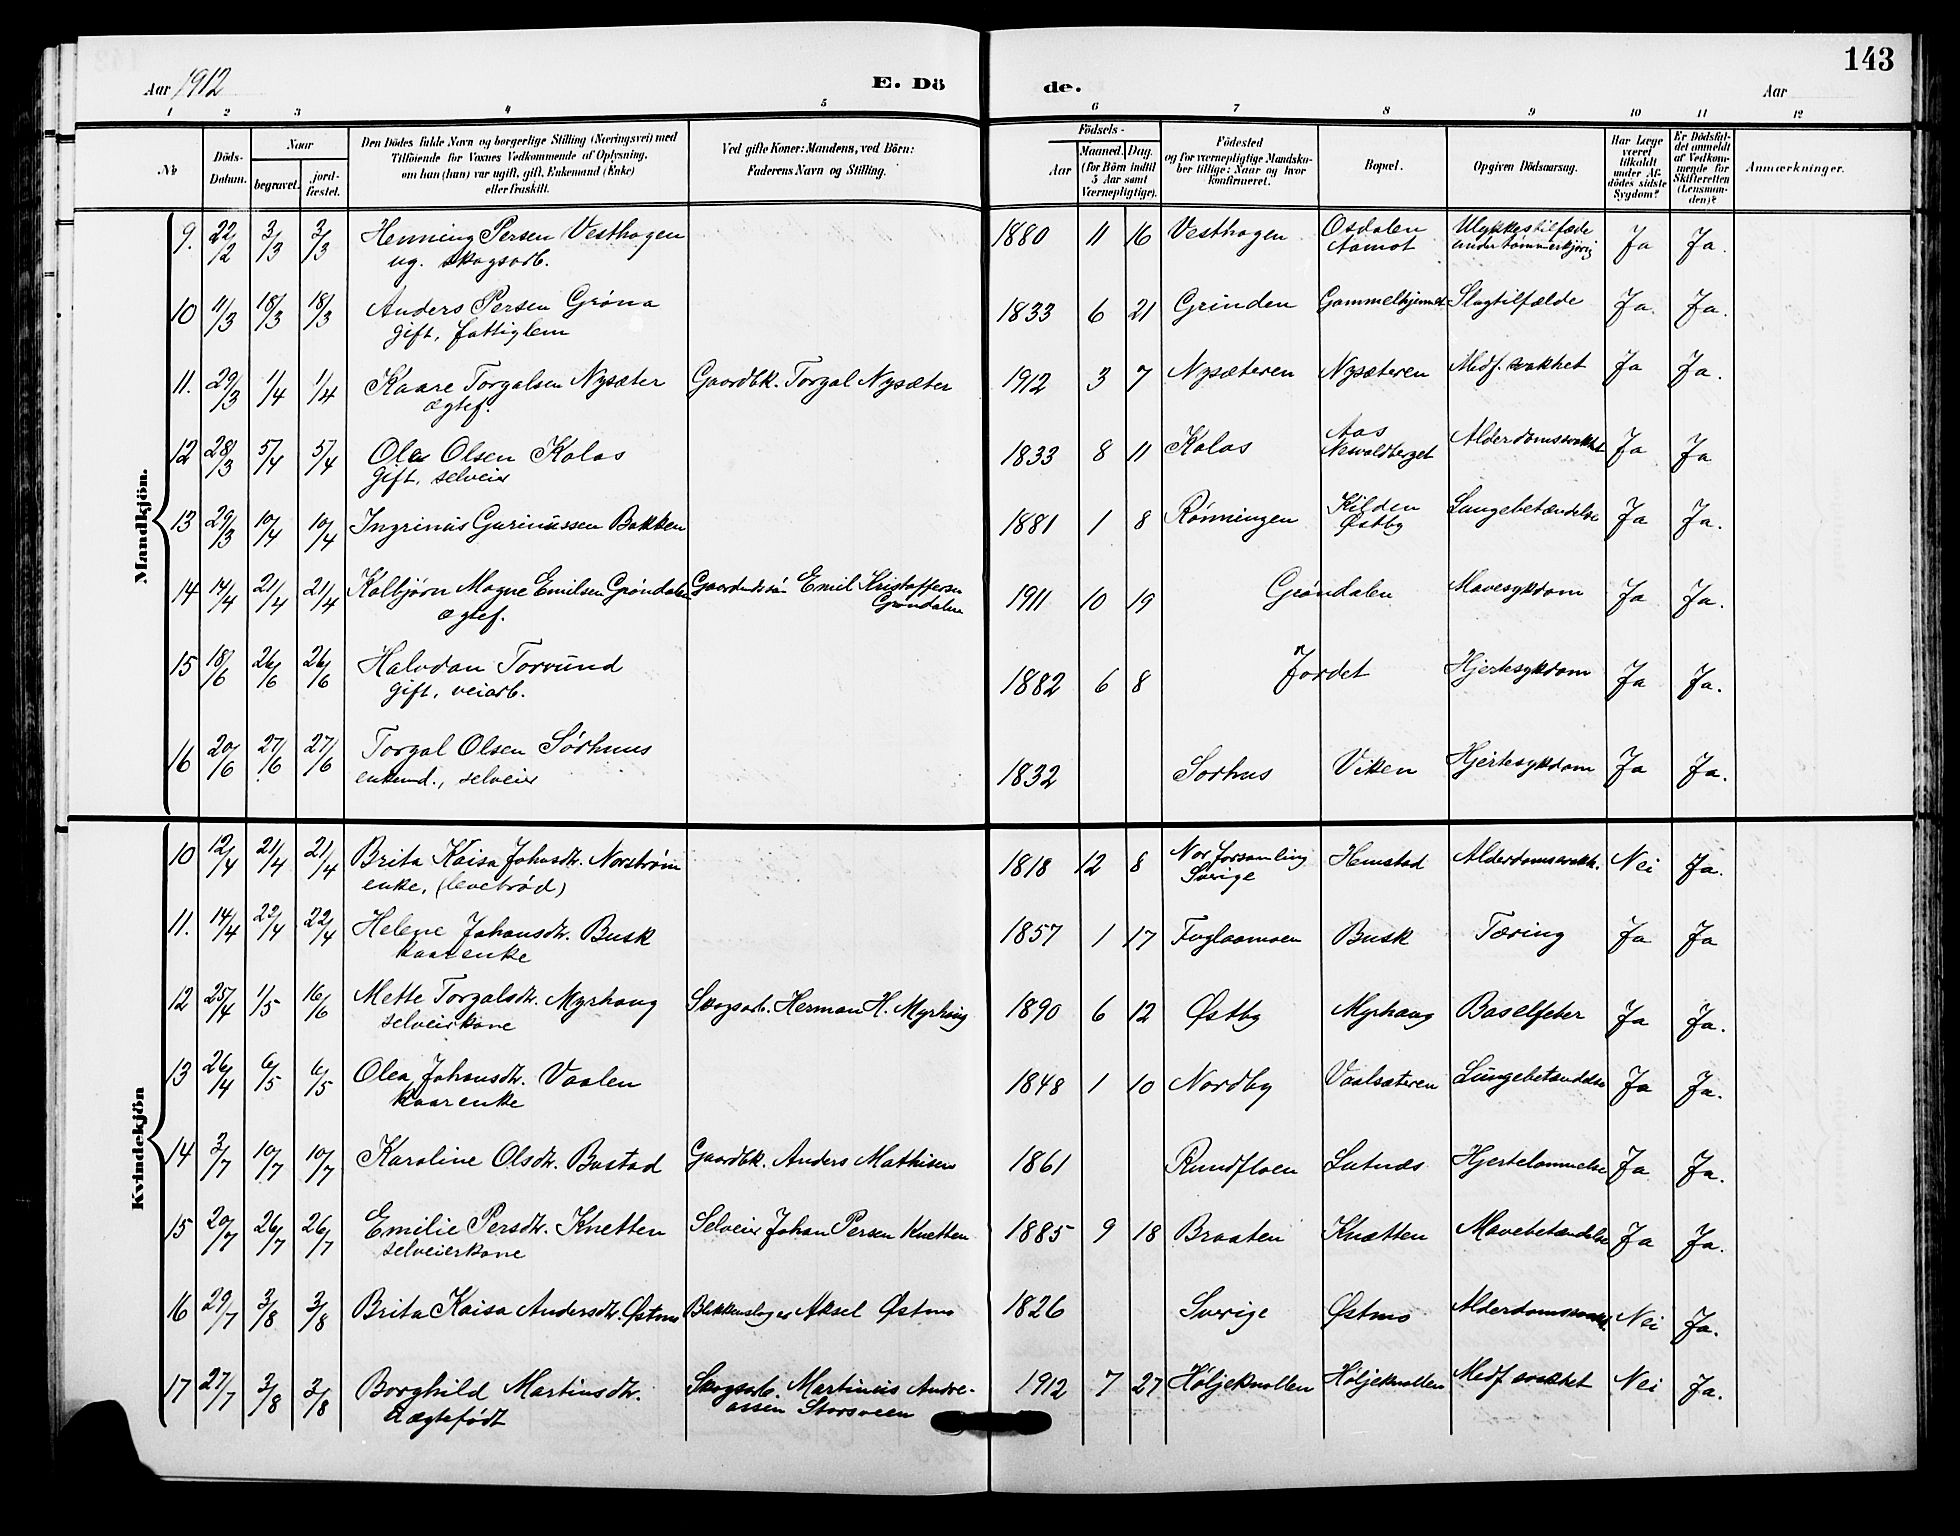 143
Aar 1912
E. Dö
de.
Aar
1 2 3 4 5 6 7 8 9 10 11 12
No
Döds-
Datum.
Naar
begravet.
jord-
fæstet.
Den Dödes fulde Navn og borgerlige Stilling (Næringsvei) med
Tilföiende for Voxnes Vedkommende af Oplysning,
om han (hun) var ugift, gift, Enkemand (Enke)
eller fraskilt.
Ved gifte Koner: Mandens, ved Börn:
Faderens Navn og Stilling.
Födsels-
Aar
Maaned.
Dag.
(for Börn indtil
5 Aar samt
Værnepligtige).
Födested
og for værnepligtige Mandska-
ber tillige: Naar og hvor
konfirmeret.
Bopæl.
Opgiven Dödsaarsag.
Har Læge
været
tilkaldt
under Af-
dödes sidste
Sygdom?
Er Dödsfal-
det anmeldt
af Vedkom-
mende for
Skifteretten
(Lensman-
den)?
Anmærkninger.
Mandkjön.
9. 22/2 3/3 3/3 Henning Persen Vesthagen 1880 11 16 Vesthagen Osdalen Ulykkestilfæde Ja Ja.
ug. skogsarb. Aamot under tømmerkjørig
10 11/3 18/3 18/3 Anders Persen Grøna 1833 6 21 Grinden Gammelhjemmet Slagtilfælde Ja. Ja.
gift, fattiglem
11. 29/3 1/4 1/4 Kaare Torgalsen Nysæter Gaardbk. Torgal Nysæter 1912 3 7 Nysæteren Nysæteren Medf. svakhet Ja Ja.
ægtef.
12 28/3 5/4 5/4 Ola Olsen Kolos 1833 8 11 Kolos Aas Alderdomssvakhet Ja Ja
gift, selveier
13 29/3 10/4 10/4 Ingrinius Guriniussen Bakken 1881 1 8 Rønningen Kilden Lungebetændelse Ja Ja.
Østby
14 14/4 21/4 21/4 Kolbjørn Magne Emilsen Grøndalen Emil Kristoffersen 1911 10 19 Grøndalen Mavesykdom Ja Ja.
ægtef. Grøndalen
15 18/6 26/6 26/6 Halvdan Torvund 1882 6 8 Jordet Hjertesykdom Ja Ja.
gift, veiarb.
16 20/6 27/6 27/6 Torgal Olsen Sørhuus 1832 Sørhus Viken Hjertesykdom Ja Ja.
enkemd., selveier
Kvindekjön
10 12/4 21/4 21/4 Brita Kaisa Johansdtr. Norstrøm 1818 12 8 Nor forsamling Hemstad Alderdomssvakh. Nei Ja.
enke, (levebrød) Sverige
11. 14/4 22/4 22/4 Helene Johansdtr. Busk 1857 1 17 Fuglaamoen Busk Tæring Ja Ja
kaarenke
12 25/4 1/5 16/6 Mette Torgalsdtr. Myrhaug Skogsarb. Herman H. Myrhaug 1890 6 12 Østby Myrhaug Baselfeber Ja Ja.
selveierkone
13 26/4 6/5 6/5 Olea Johansdtr. Vaalen 1848 1 10 Nordby Vaalsæteren Lungebetændelse Ja Ja.
kaarenke
14 3/7 10/7 10/7 Karoline Olsdtr. Bustad Gaardbk. Anders Mathisen 1861 Rundfloen Lutnæs Hjertelammelse Ja Ja.
15 20/7 26/7 26/7 Emilie Persdtr. Knetten Selveier Johan Persen Knetten 1885 9 18 Braaten Knætten Mavebetændelse Ja Ja.
selveierkone
16 29/7 3/8 3/8 Brita Kaisa Andersdtr. Østmo Blikkenslager Aksel Østmo 1826 Sverige Østmo Alderdomssvakh. Nei Ja.
17 27/7 3/8 3/8 Borghild Martinusdtr. Skogsarb. Martinius Andre- 1912 7 27 Høljeknollen Høljeknollen Medf svakhet Nei Ja.
ægtefødt assen Storsveen